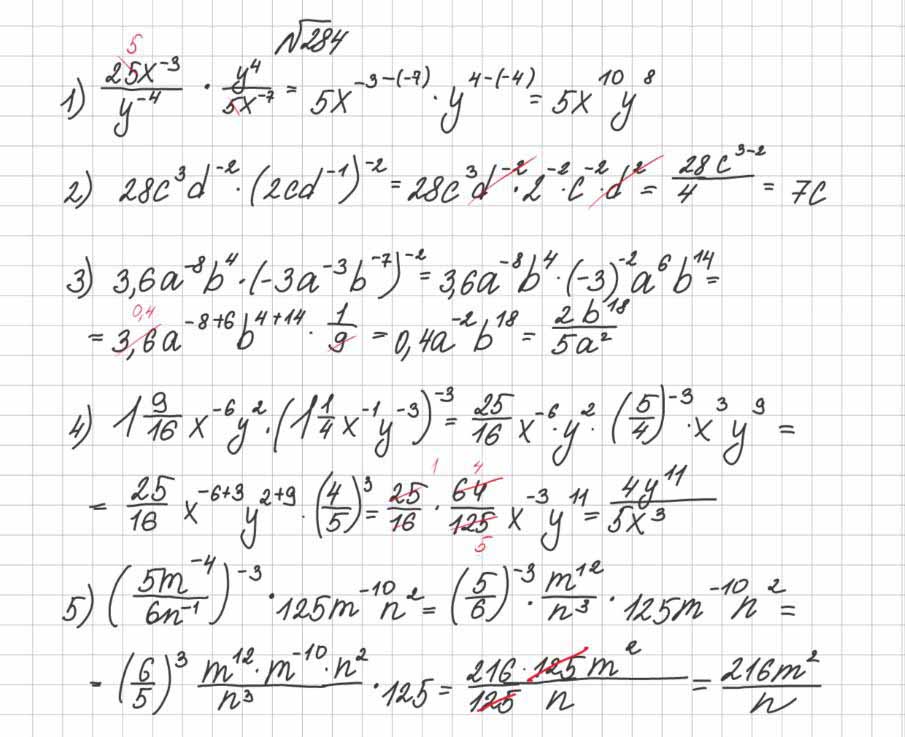 √284
1) 25x⁻³/y⁻⁴ · y⁴/5x⁻⁷ = 5x⁻³⁻⁽⁻⁷⁾ · y⁴⁻⁽⁻⁴⁾ = 5x¹⁰y⁸
5
2) 28c³d⁻² · (2cd⁻¹)⁻² = 28c³d⁻² · 2⁻² · c⁻² · d² = 28c³⁻²/4 = 7c
3) 3,6a⁻⁸b⁴ · (-3a⁻³b⁻⁷)⁻² = 3,6a⁻⁸b⁴ · (-3)⁻²a⁶b¹⁴ =
0,4
= 3,6a⁻⁸⁺⁶b⁴⁺¹⁴ · 1/9 = 0,4a⁻²b¹⁸ = 2b¹⁸/5a²
4) 1 9/16 x⁻⁶y² · (1 1/4 x⁻¹y⁻³)⁻³ = 25/16 x⁻⁶ · y² · (5/4)⁻³ · x³y⁹ =
1 4
= 25/16 x⁻⁶⁺³y²⁺⁹ · (4/5)³ = 25/16 · 64/125 x⁻³y¹¹ = 4y¹¹/5x³
5
5) (5m⁻⁴/6n⁻¹)⁻³ · 125m⁻¹⁰n² = (5/6)⁻³ · m¹²/n³ · 125m⁻¹⁰n² =
= (6/5)³ m¹² · m⁻¹⁰ · n²/n³ · 125 = 216 · 125m²/125 n = 216m²/n